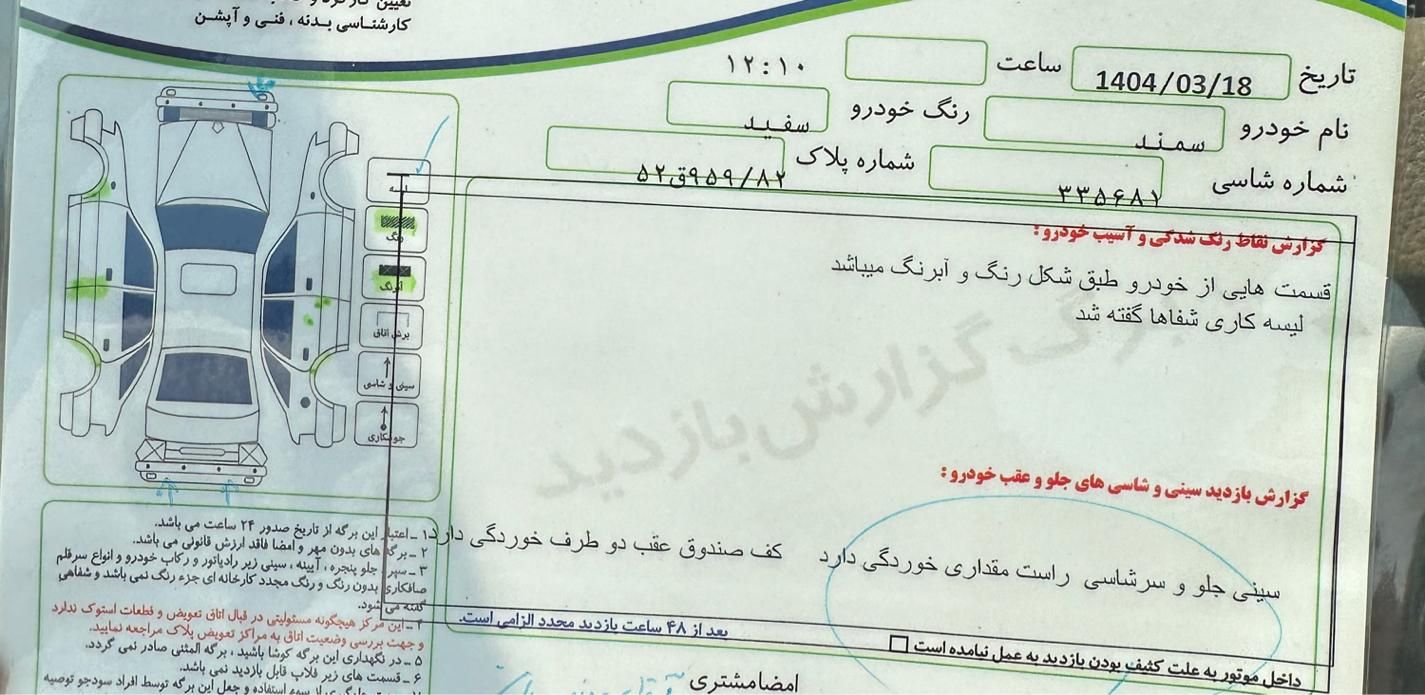 کارشناسی بدنه ، فنی و آپشن
تاریخ 1404/03/18 ساعت ۱۲:۱۰
نام خودرو سمند رنگ خودرو سفید
شماره شاسی ۳۳۵۶۸۱ شماره پلاک ۹۵۹/۸۲ق۵۲
رنگ
آبرنگ
برش اتاق
سینی و شاسی
جوشکاری
گزارش نقاط رنگ شدگی و آسیب خودرو:
قسمت هایی از خودرو طبق شکل رنگ و آبرنگ میباشد
لیسه کاری شفاها گفته شد
برگ گزارش بازدید
گزارش بازدید سینی و شاسی های جلو و عقب خودرو:
سینی جلو و سرشاسی راست مقداری خوردگی دارد کف صندوق عقب دو طرف خوردگی دارد
بعد از ۴۸ ساعت بازدید مجدد الزامی است.
داخل موتور به علت کثیف بودن بازدید به عمل نیامده است
امضامشتری
۱ـ اعتبار این برگه از تاریخ صدور ۲۴ ساعت می باشد.
۲ـ برگه های بدون مهر و امضا فاقد ارزش قانونی می باشد.
۳ـ سپر جلو پنجره ، آیینه ، سینی زیر رادیاتور و رکاب خودرو و انواع سرقلم
صافکاری بدون رنگ و رنگ مجدد کارخانه ای جزء رنگ نمی باشد و شفاهی
گفته می شود.
۴ـ این مرکز هیچگونه مسئولیتی در قبال اتاق تعویض و قطعات استوک ندارد
و جهت بررسی وضعیت اتاق به مراکز تعویض پلاک مراجعه نمایید.
۵ـ در نگهداری این برگه کوشا باشید ، برگه المثنی صادر نمی گردد.
۶ـ قسمت های زیر فلاپ قابل بازدید نمی باشد.
سوء استفاده و جعل این برگه توسط افراد سودجو توصیه